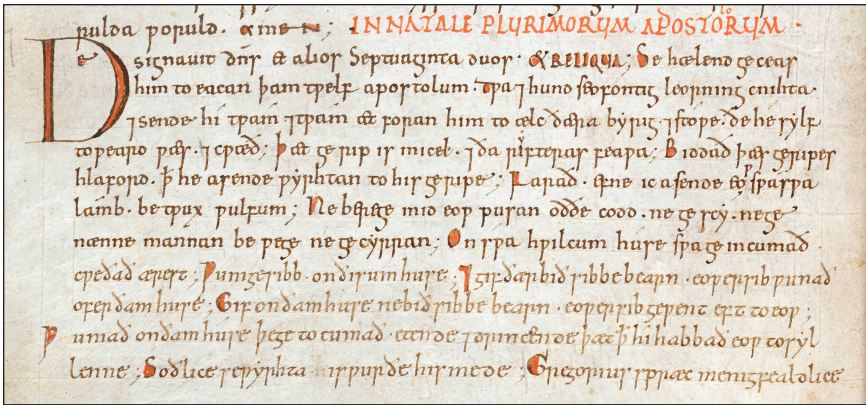 ƿulda ƿoruld. amen; IN NATALE PLURIMORUM APOSTOLORUM.
Designauit dns & alios septuaginta duos. & RELIQUA; Se hælend geceas
him to eacan þam tƿelf apostolum. tƿa ⁊ hund seofontig leorning cnihta
⁊ sende hi tƿam ⁊ tƿam æt foran him to ælcere byrig. ⁊ stoƿe. ðe he sylf
toƿeard ƿæs. ⁊ cƿæð; Þæt gerip is micel. ⁊ ða rifteras feaƿa; Biddað þæs geripes
hlaford. þ he asende ƿyrhtan to his geripe; Farað. efne ic asende eoƿ sƿa sƿa
lamb. betƿux ƿulfum; Ne bere ge mid eoƿ pusan oððe codd. ne gescy. ne ge
nænne mannan be ƿege ne gecyrran; On sƿa hƿilcum huse sƿa ge in cumað.
cƿeðað ærest; Ƿunige sibb. on ðisum huse; ⁊ gif ðær bið sibbe bearn. eoƿer sib ƿunað
ofer ðam huse; Gif on ðam huse ne bið sibbe bearn. eoƿer sib geƿent eft to eoƿ;
Ƿuniað on ðam huse þe ge to cumað. etende ⁊ drincende þæt þ hi habbað eoƿ to syl
lenne; Soðlice se ƿyrhta is ƿurðe his mede; Gregorius spræc menigfealdlice